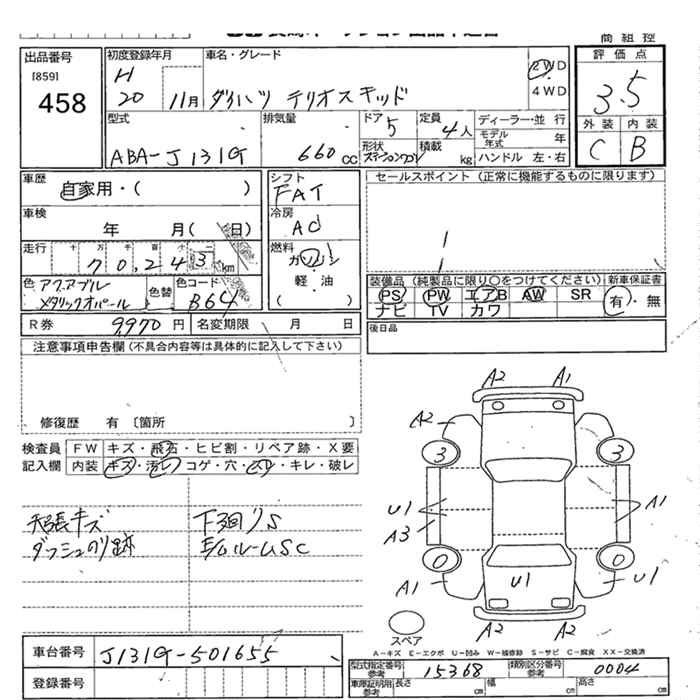 商 組 控
出品番号
[859]
458
初度登録年月
H
20
11月
車名・グレード
ダイハツ テリオスキッド
2WD
4WD
評価点
3.5
外装 内装
C B
型式
ABA-J131G
排気量
660 cc
ドア 5
定員 4人
形状 ステーションワゴン
積載 kg
ディーラー・並行
モデル年式 年
ハンドル 左・右
車歴
自家用・( )
シフト
FAT
セールスポイント (正常に機能するものに限ります)
車検
年 月( 日)
冷房
AC
走行 十 万 千 百 十
70,243 km
燃料
ガソリン
軽・油
( )
色 アクアブル
メタリックオパール
色替
色コード
B64
装備品 (純製品に限り○をつけてください)
PS PW エアB AW SR
ナビ TV カワ
新車保証書
有・無
R券 9970 円
名変期限 月 日
後日品
注意事項申告欄 (不具合内容等は具体的に記入して下さい)
修復歴 有 〔箇所 〕
検査員
記入欄
FW キズ・飛石・ヒビ割・リペア跡・X要
内装 キズ・汚レ・コゲ・穴・スレ・キレ・破レ
天張キズ
ダッシュのり跡
下回りS
E/GルームSC
A2 A1
A2
3 3
U1
A3
A1
0 0
A1
U1
U1
A2 A2
スペア
A-キズ E-エクボ U-凹み W-補修跡 S-サビ C-腐食 XX-交換済
車台番号 J131G-501655
登録番号
型式指定番号
参考
15368
類別区分番号
参考
0004
車庫証明用
参考
長さ cm 幅 cm 高さ cm